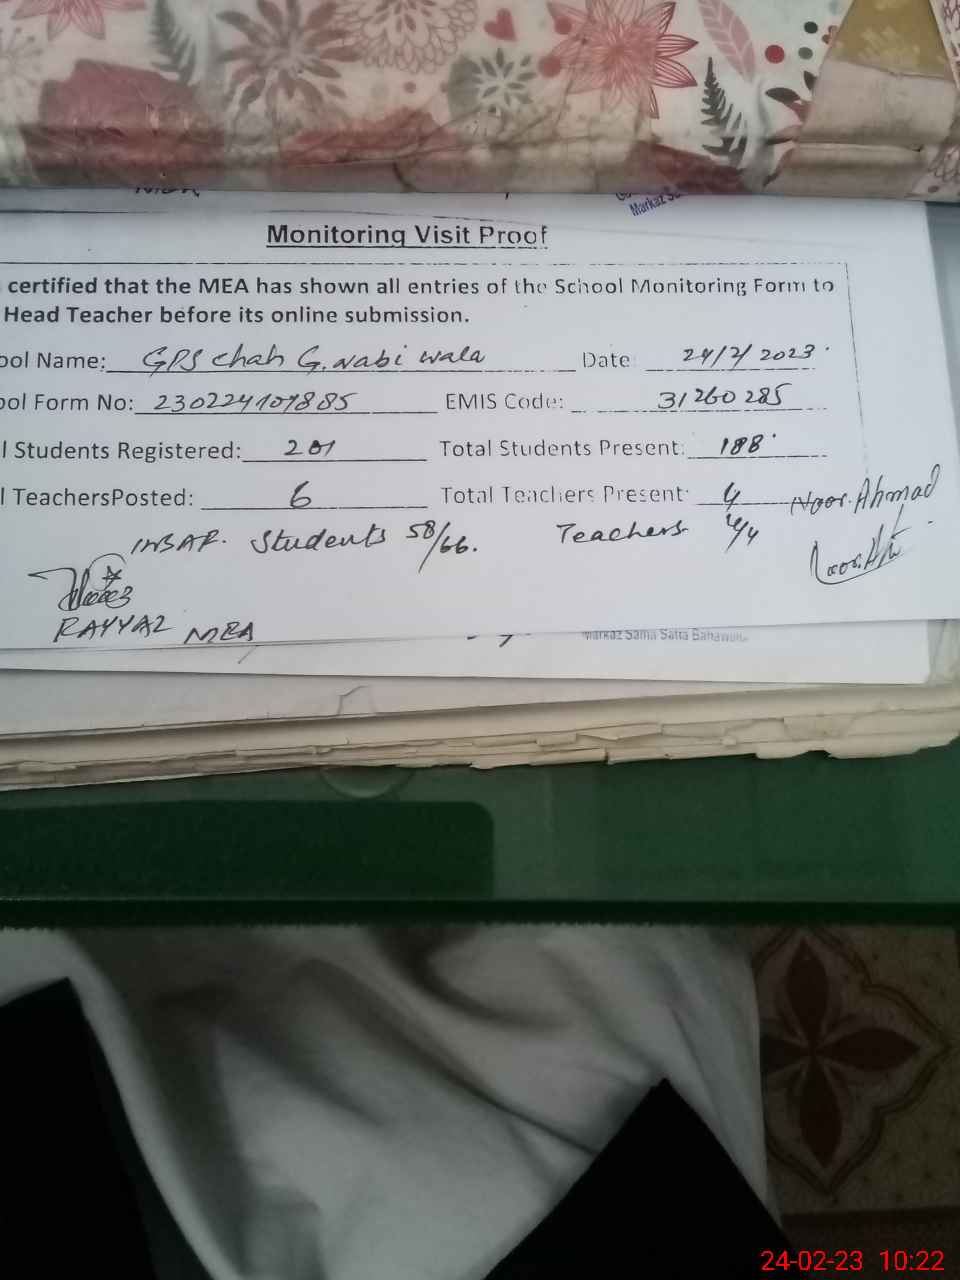 Markaz
Monitoring Visit Proof
certified that the MEA has shown all entries of the School Monitoring Form to
Head Teacher before its online submission.
ool Name: GPS chah G. Nabi wala Date: 24/2/2023
ool Form No: 230224107885 EMIS Code: 31260285
l Students Registered: 201 Total Students Present: 188
l TeachersPosted: 6 Total Teachers Present: 4 Noor Ahmad
INSAF. Students 58/66. Teachers 4/4
RAYYAZ MEA
Markaz Sama Satta Bahawul
24-02-23 10:22